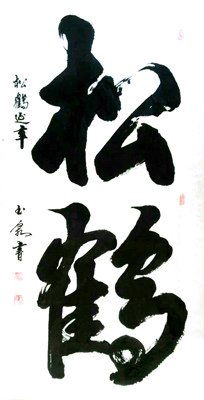 松鶴
松鶴延年
玉泉書